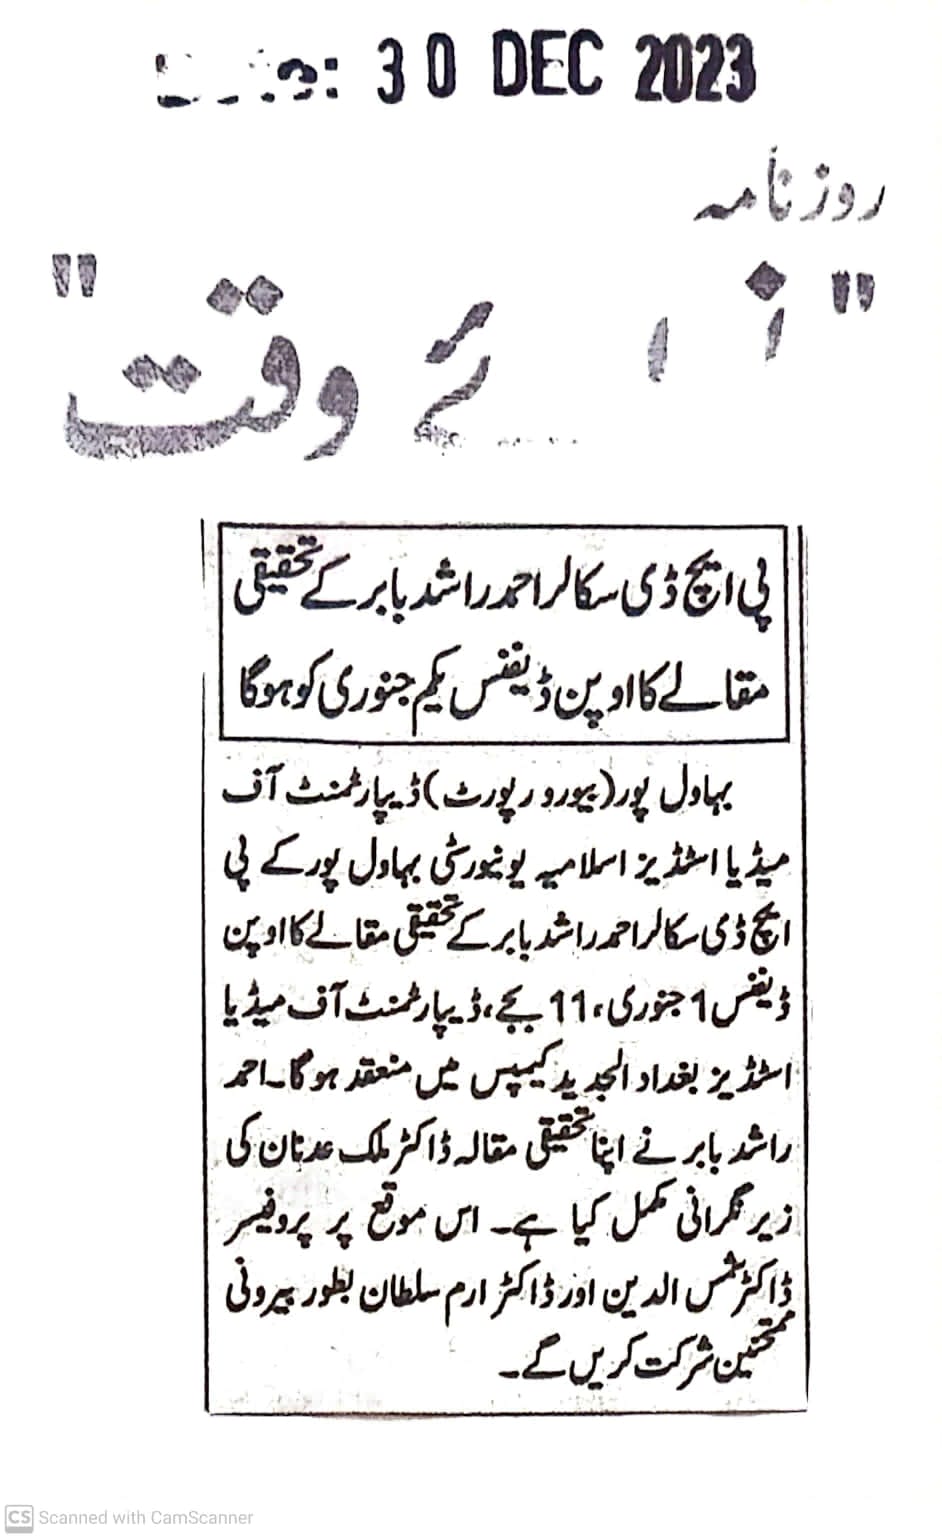 : 30 DEC 2023
روزنامہ
"نوائے وقت"
پی ایچ ڈی سکالر احمد راشد بابر کے تحقیقی
مقالے کا اوپن ڈیفنس یکم جنوری کو ہوگا
بہاول پور (بیورو رپورٹ) ڈیپارٹمنٹ آف
میڈیا اسٹڈیز اسلامیہ یونیورسٹی بہاول پور کے پی
ایچ ڈی سکالر احمد راشد بابر کے تحقیقی مقالے کا اوپن
ڈیفنس 1 جنوری، 11 بجے، ڈیپارٹمنٹ آف میڈیا
اسٹڈیز بغداد الجدید کیمپس میں منعقد ہوگا۔ احمد
راشد بابر نے اپنا تحقیقی مقالہ ڈاکٹر ملک عدنان کی
زیر نگرانی مکمل کیا ہے۔ اس موقع پر پروفیسر
ڈاکٹر شمس الدین اور ڈاکٹر ارم سلطان بطور بیرونی
ممتحنین شرکت کریں گے۔
CS Scanned with CamScanner